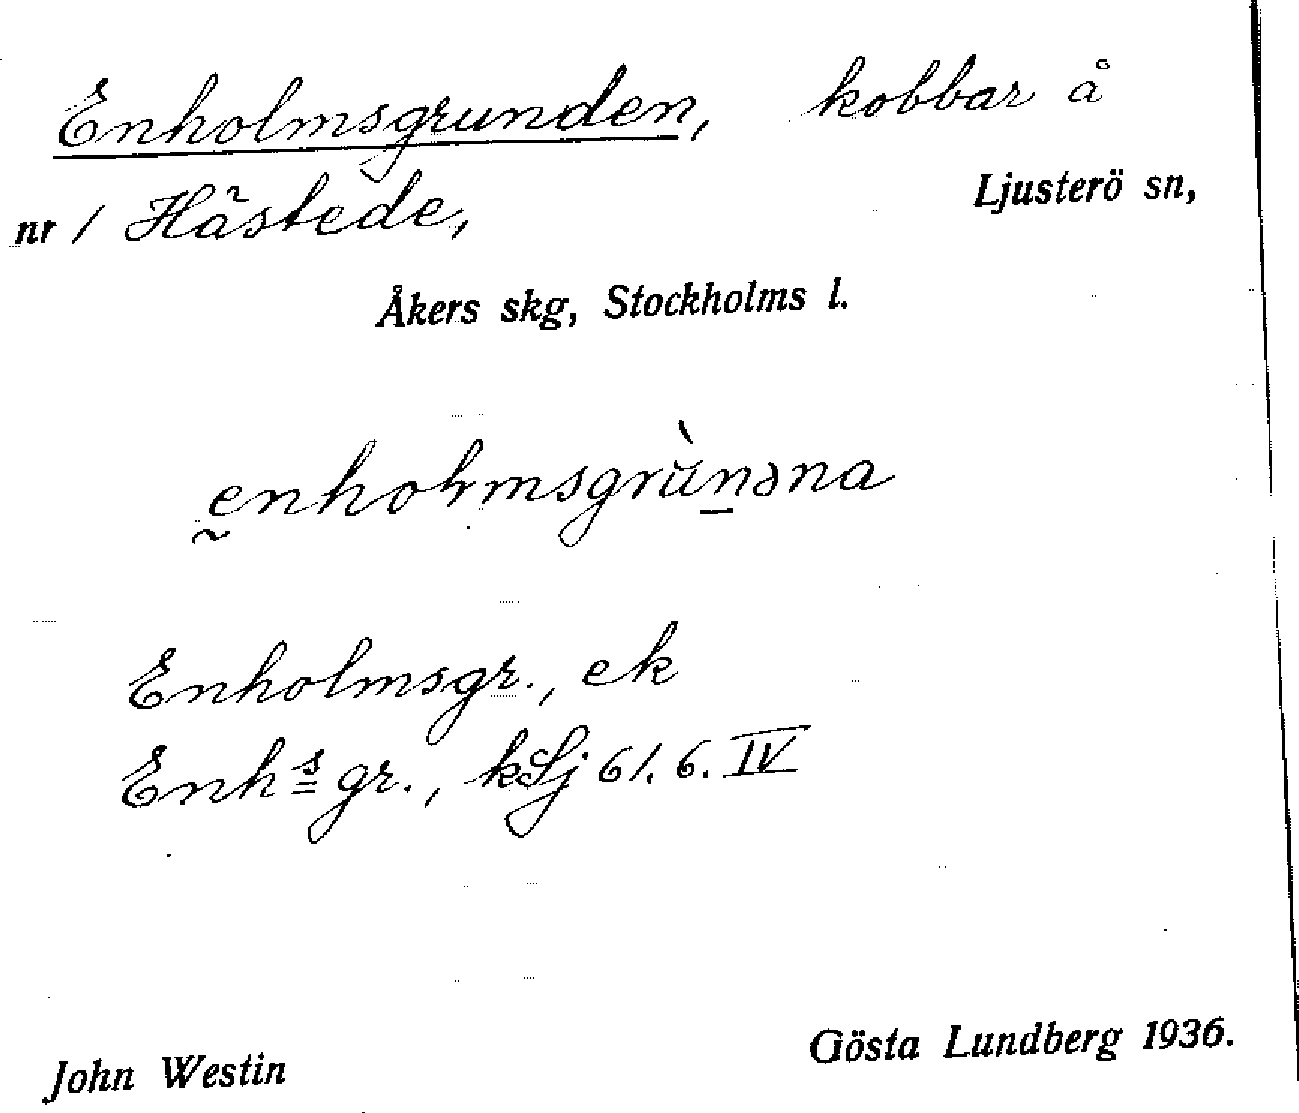 Enholmsgrunden, kobbar å
nr 1 Hästede, Ljusterö sn,
Åkers skg, Stockholms l.
enholmsgrùnəna
Enholmsgr., ek
Enhs gr., kLj 61. 6. IV
John Westin Gösta Lundberg 1936.